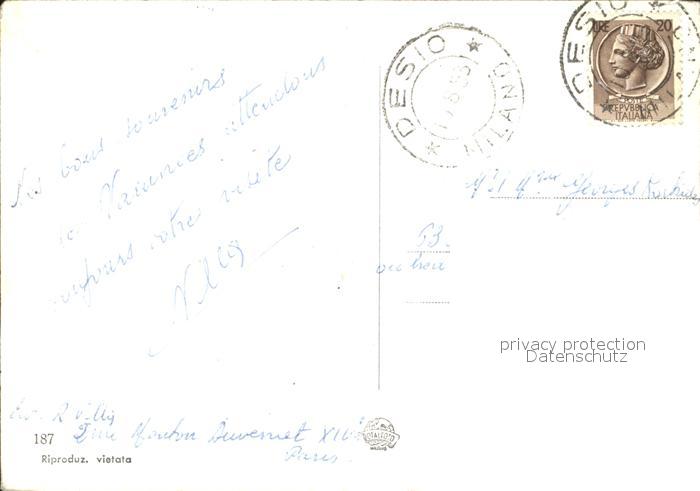 Nos bons souvenirs
de Vacances attendons
toujours votre visite
Villa
DESIO
MILANO
DESIO
LIRE 20
POSTE
REPVBBLICA
ITALIANA
Mr et Mme Georges
53.
privacy protection
Datenschutz
187
Mouton Duvernet XIV
Paris
Riproduz. vietata